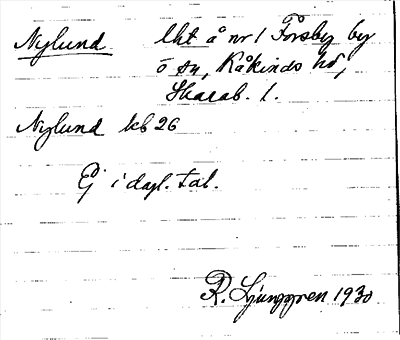 Nylund. lht å nr 1 Forsby by
o sn, Kåkinds hd,
Skarab. l.
Nylund kb 26
Ej i dagl. tal.
R. Ljunggren 1930